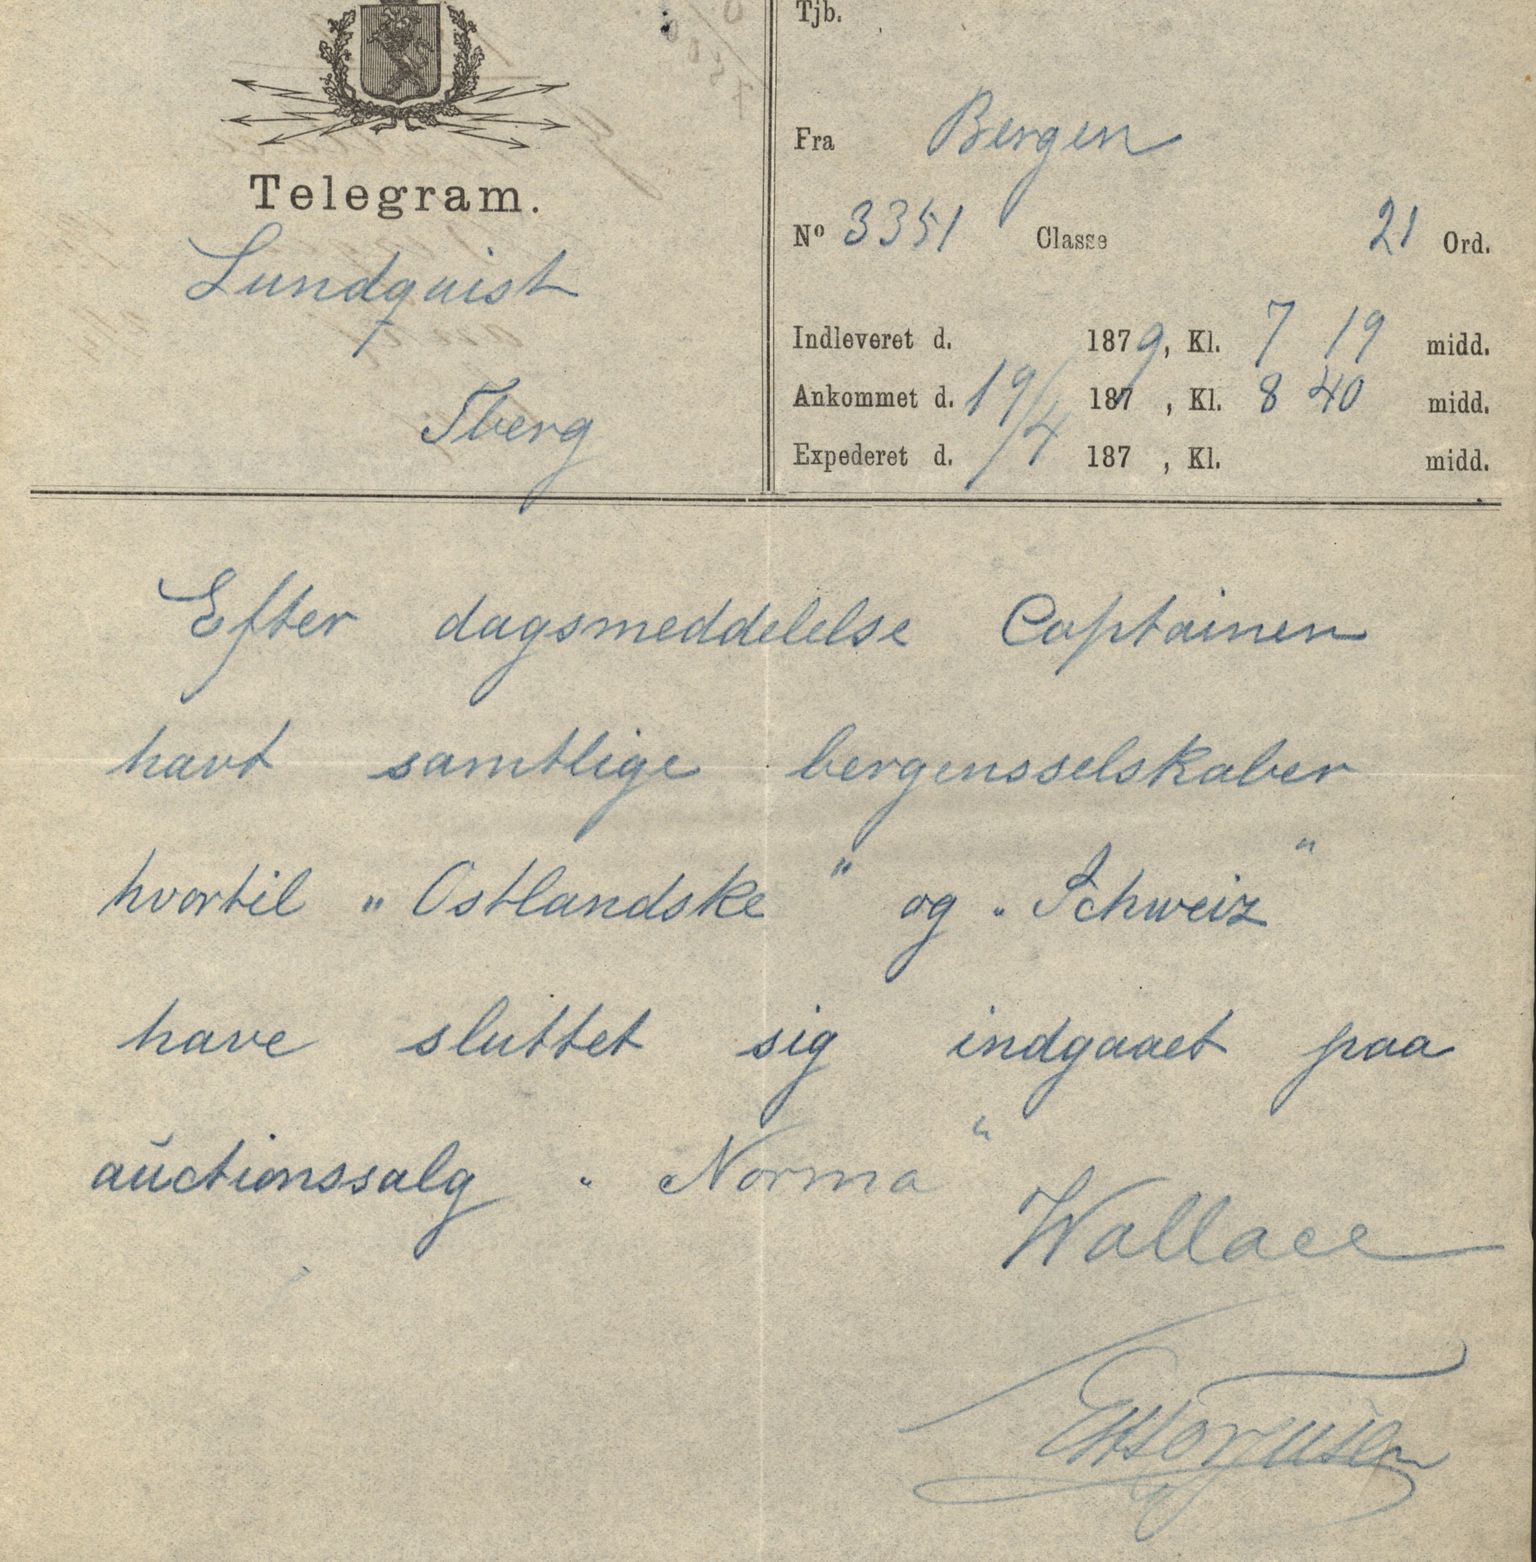 Telegram.
Lundquist
Tberg
Tjb.
Fra Bergen
Nº 3351 Classe 21 Ord.
Indleveret d. 1879, Kl. 7 19 midd.
Ankommet d. 19/4 187 , Kl. 8 40 midd.
Expederet d. 187 , Kl. midd.
Efter dagsmeddelelse Captainen
havt samtlige bergensselskaber
hvortil "Ostlandske" og "Schweiz"
have sluttet sig indgaaet paa
auctionssalg "Norma"
Wallace